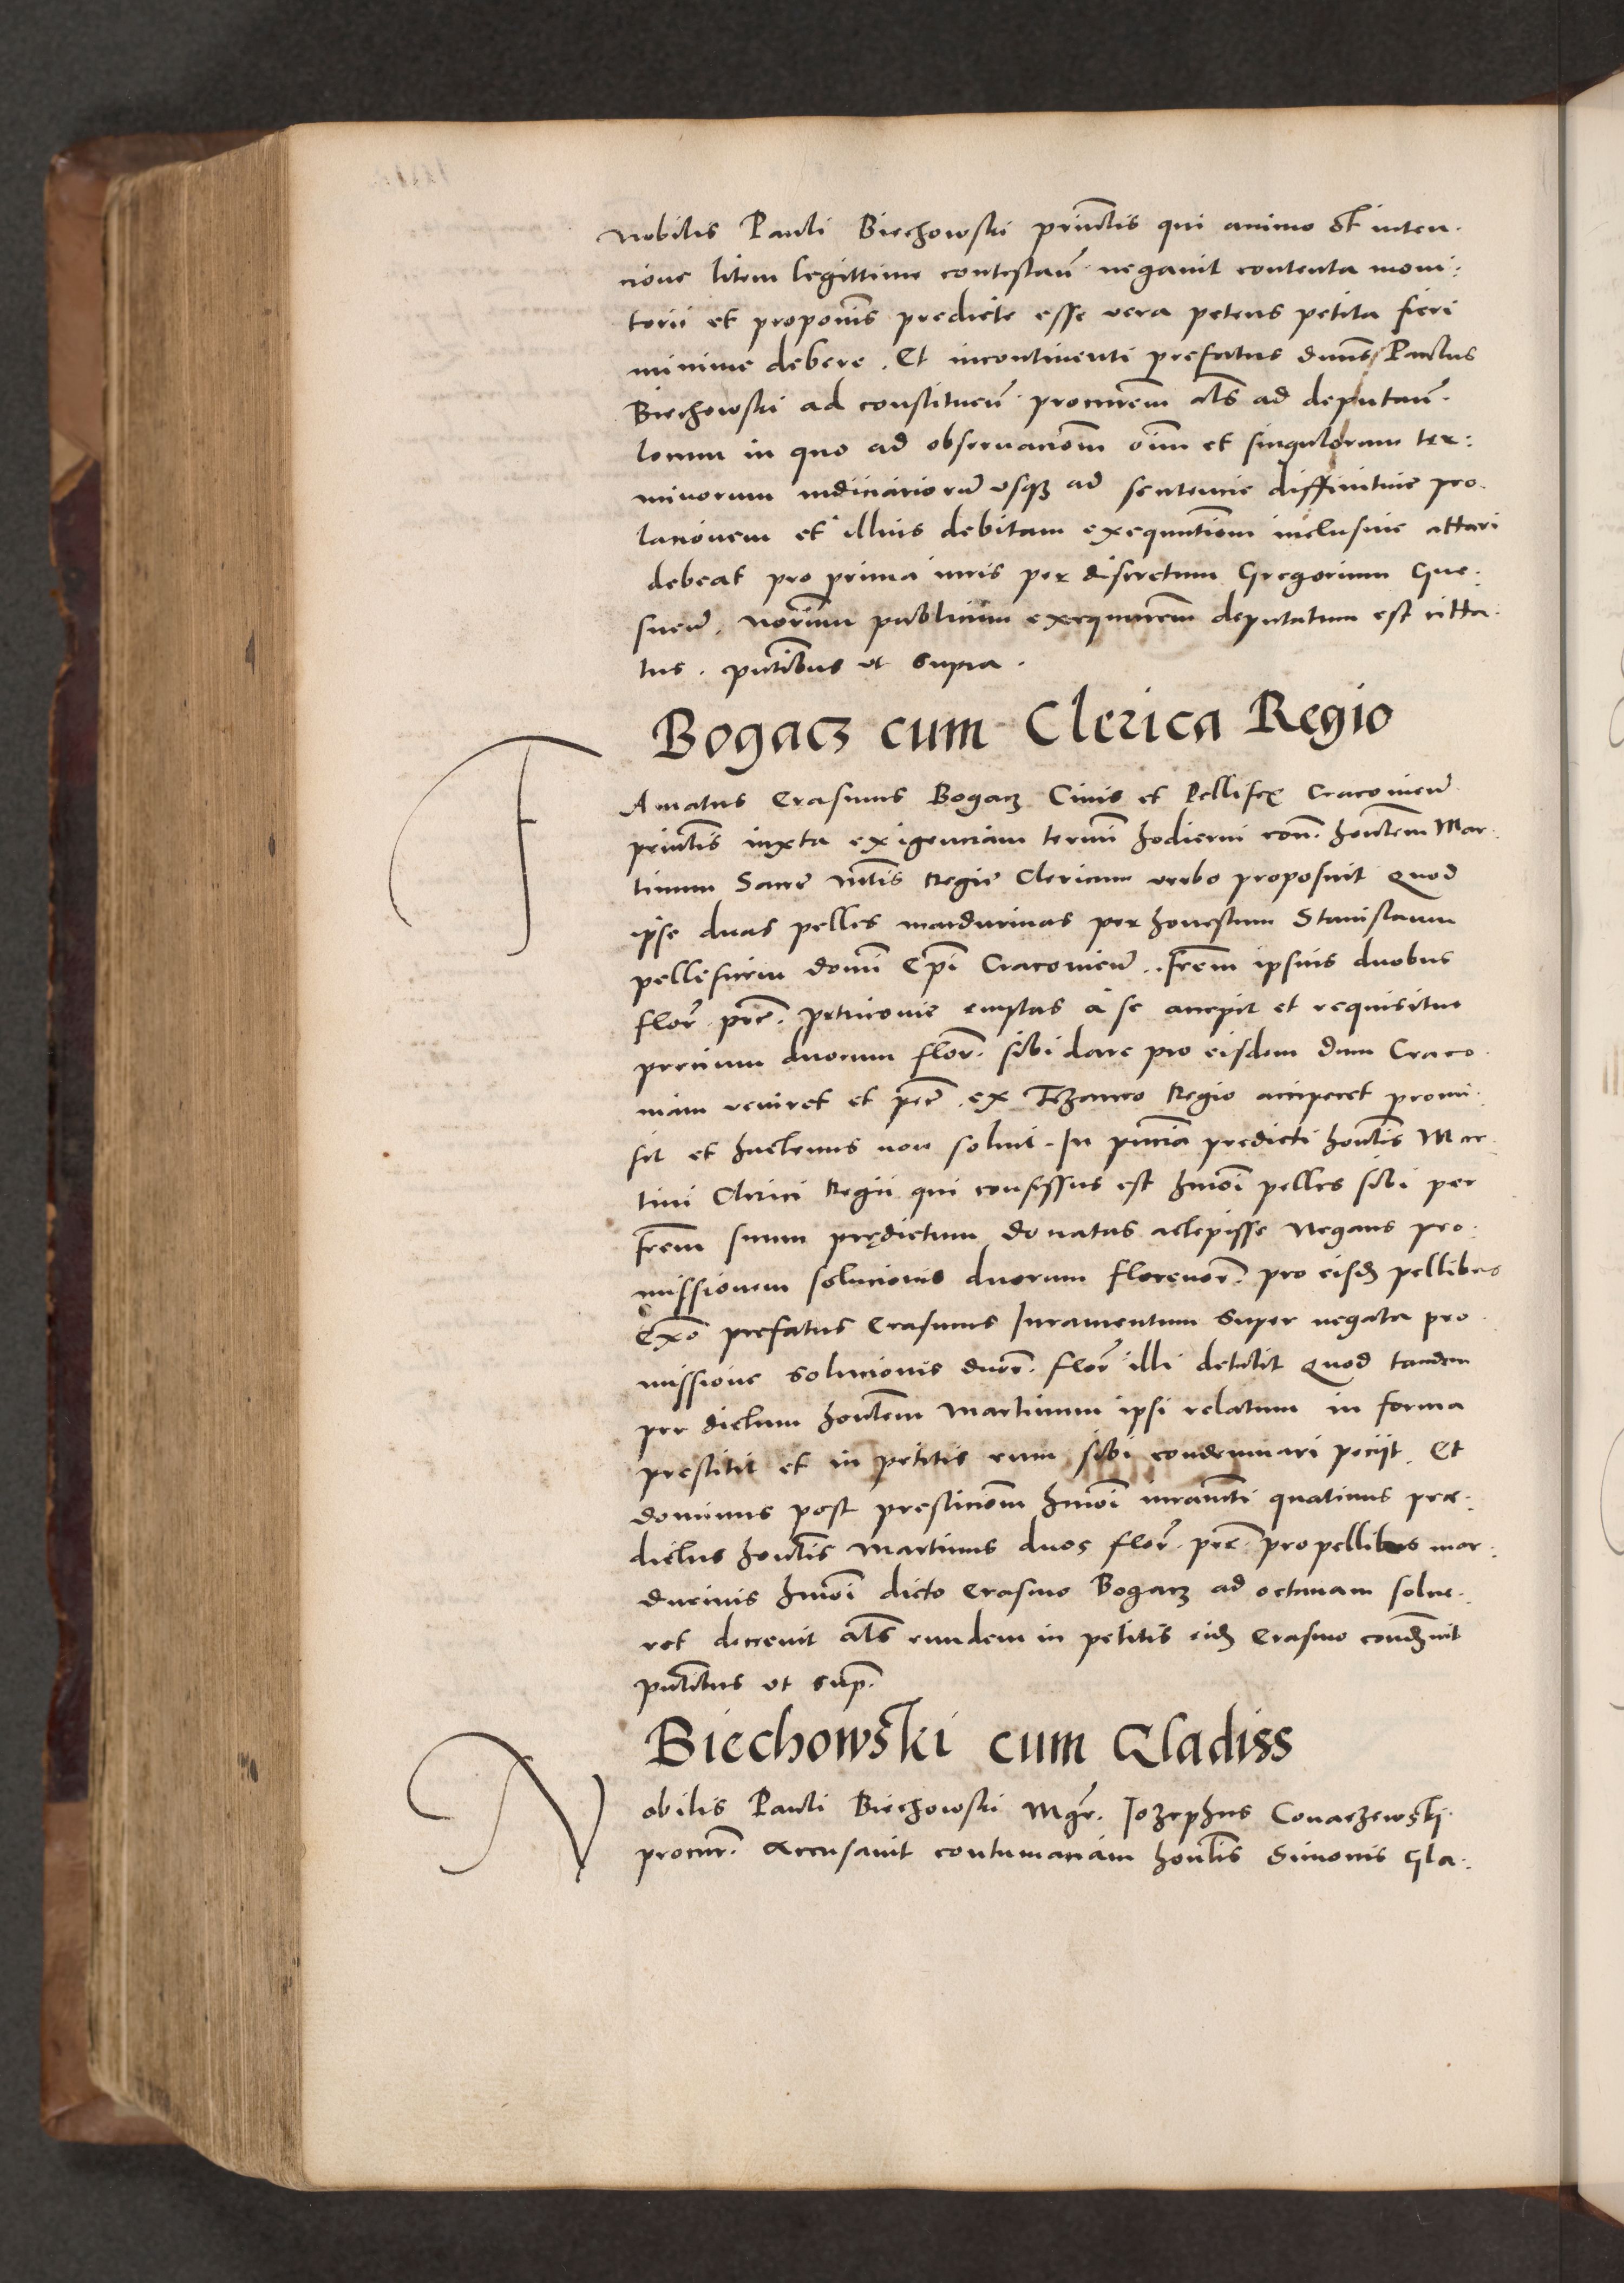 nobilis Pauli Biechowski princtis qui animo et inten.
cione litem legittime contestan̄. negauit contenta moni:
torii et proponis̄ predicte esse vera petens petita fieri
minime debere. Et incontinenti prefatus dnus Paulus
Biechowski ad constituen̄. procurem̄ als̄ ad deputan̄.
locum in quo ad obseruaciom̄ oim̄ et singulorum ter:
minorum iudiciariorū vsqz ad sentencie diffinitiue pro.
lacionem et illius debitam exequutiom̄ inclusiue attari
debeat pro prima iuris per discretum Gregorium Gne.
snen̄. norium̄ publicum exequutem̄ deputatum est citta.
tus. pntibus̄ vt supra.
Bogacz cum Clerica Regio
Famatus Erasmus Bogacz Ciuis et Pellifex Cracouien̄
princtis̄ iuxta exigenciam termi̅ hodierni con̄. hontem̄ Mar.
tinum Sacre mtis̄ Regie Clericum verbo proposuit Quod
ipse duas pelles mardurinas per honestum Stanislaum
pellificem domi̅ Epi̅ Cracouien̄. frem̄ ipsius duobus
flor̄. pec̄. petuconie emptas a se accepit et requisitus
precium duorum flor̄. sibi dare pro eisdem dum Craco.
uiam veniret et pec̄. ex Tezauro Regio acciperet promi.
sit et hactenus non soluit. In pncia̅ predicti hontis̄ Mar
tini Clerici Regii qui confessus est hmoi̅ pelles sibi per
frem̄ suum prędictum donatas accepisse Negans pro.
missionem solucionis duorum florenor̄. pro eisd̄ pellibus
Exo̅ prefatus Erasmus Iuramentum super negata pro
missione solucionis duor̄. flor̄ illi detulit Quod tandem
per dictum hontem̄ Martinum ipsi relatum in forma
prestitit et in petitis eum sibi condemnari peciit. Et
dominus post presticiom̄ hmoi̅ iuramti̅ quatinus prae.
dictus hontis̄ Martinus duos flor̄. pec̄. pro pellibus mar.
durinis hmoi̅ dicto Erasmo Bogacz ad octauam solue.
ret decreuit als̄ eundem in petitis eid̄ Erasmo condēnit
pntibus̄ vt sup̄.
Biechowski cum Gladiss
Nobilis Pauli Biechowski Mgr̄. Iozephus Conarzewski.
procur̄. accusauit contumaciam hontis̄ Simonis Gla.